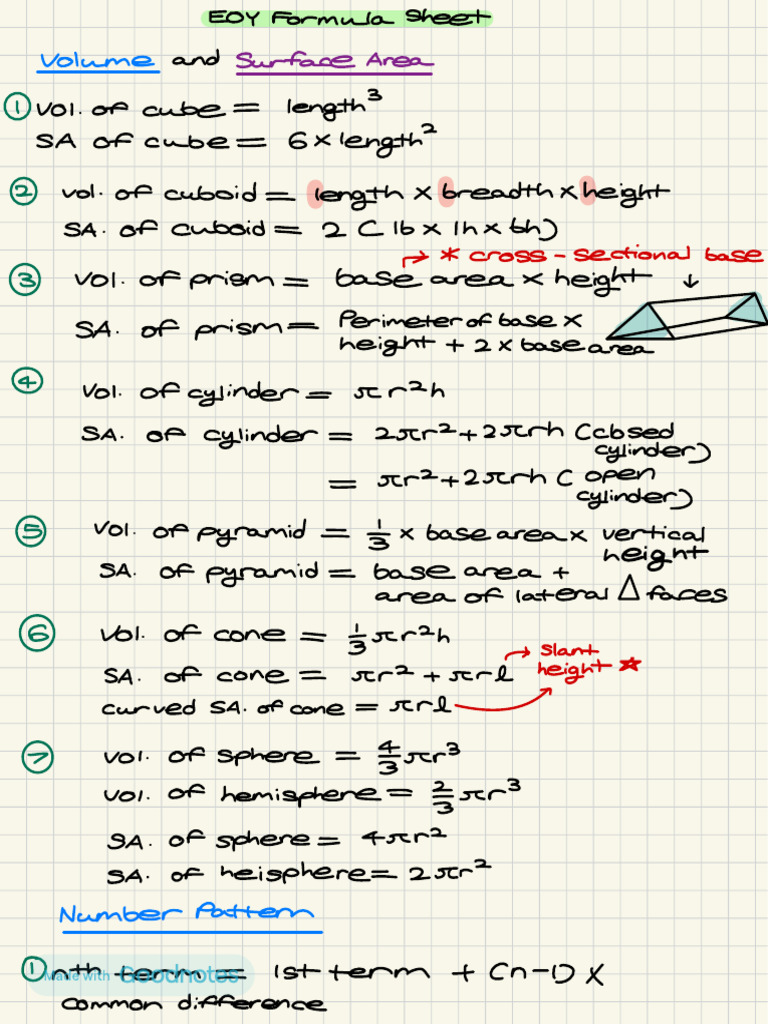 EOY Formula Sheet
Volume and Surface Area
① Vol. of cube = length³
SA of cube = 6 × length²
② vol. of cuboid = length × breadth × height
SA. of cuboid = 2 ( lb × lh × bh)
→ * cross-sectional base
③ Vol. of prism = base area × height ↓
SA. of prism = Perimeter of base ×
height + 2 × base area
④ Vol. of cylinder = πr²h
SA. of cylinder = 2πr² + 2πrh (closed
cylinder)
= πr² + 2πrh ( open
cylinder)
⑤ Vol. of pyramid = 1/3 × base area × vertical
height
SA. of pyramid = base area +
area of lateral △ faces
⑥ Vol. of cone = 1/3 πr²h
SA. of cone = πr² + πrl → slant
height ★
curved SA. of cone = πrl
⑦ Vol. of sphere = 4/3 πr³
Vol. of hemisphere = 2/3 πr³
SA. of sphere = 4πr²
SA. of heisphere = 2πr²
Number Pattern
① nth term = 1st term + (n-1) ×
common difference
Made with Goodnotes